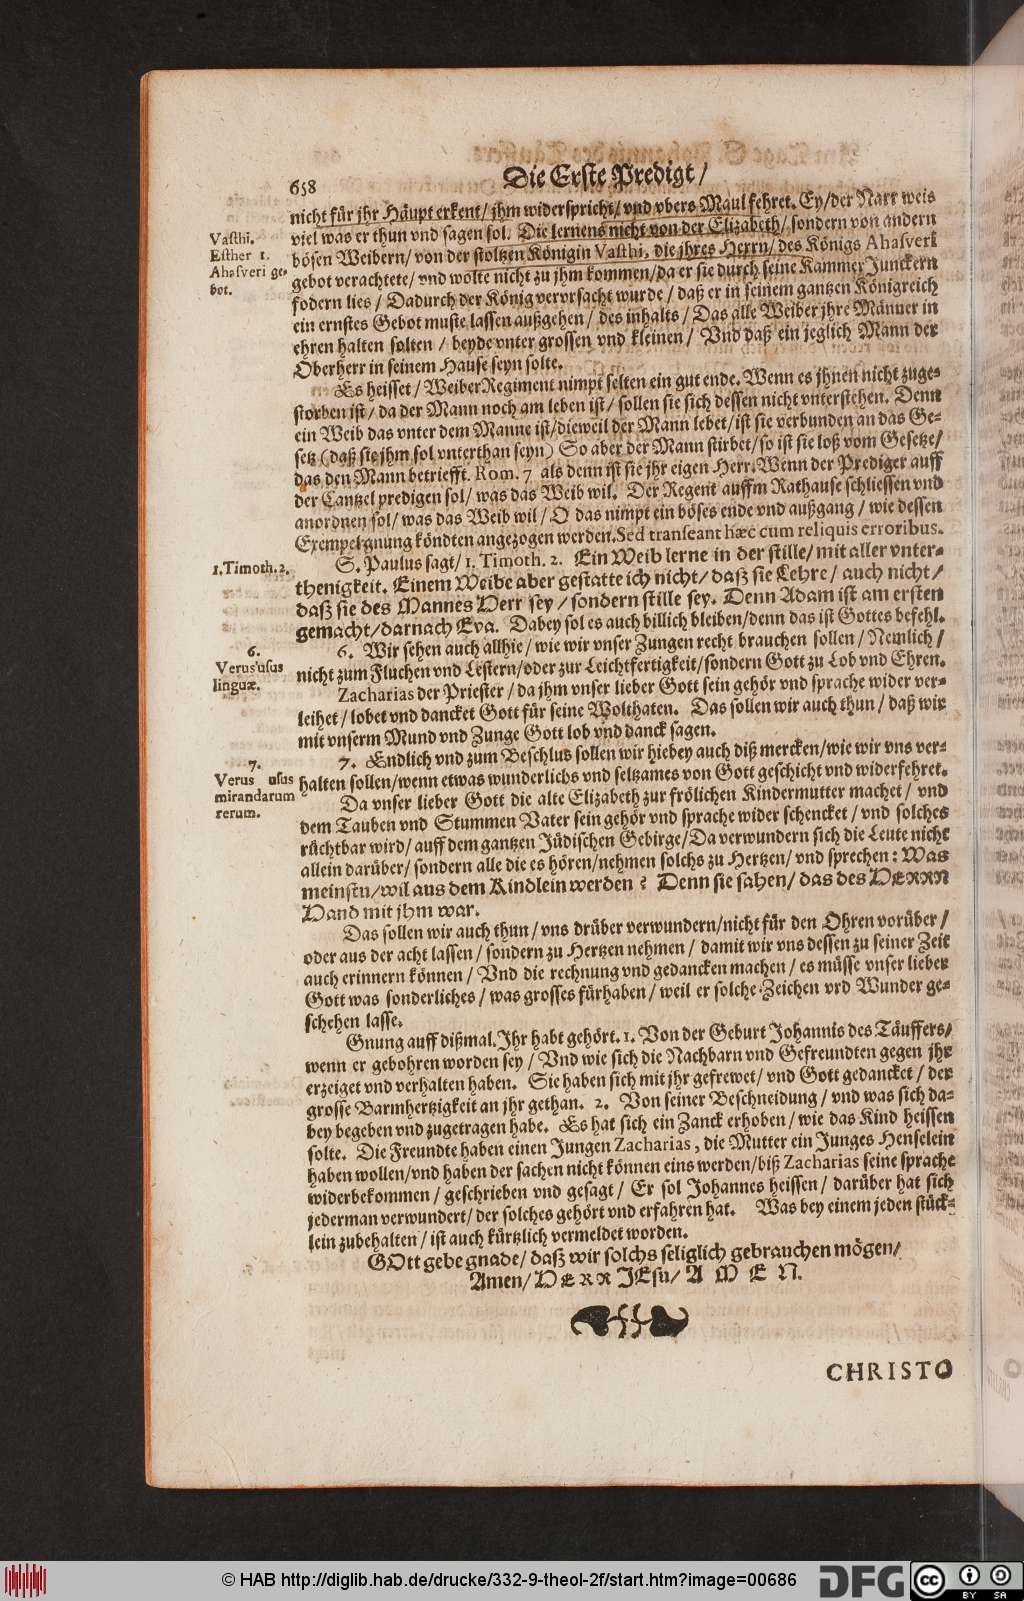 658
Die Erste Predigt /
nicht für jhr Häupt erkent / jhm widerspricht / vnd vbers Maul fehret. Ey / der Narr weis
viel was er thun vnd sagen sol. Die lernens nicht von der Elizabeth / sondern von andern
bösen Weibern / von der stoltzen Königin Vasthi, die jhres Herrn / des Königs Ahasveri
gebot verachtete / vnd wolte nicht zu jhm kommen / da er sie durch seine Kammer Junckern
fodern lies / Dadurch der König vervrsacht wurde / daß er in seinem gantzen Königreich
ein ernstes Gebot muste lassen außgehen / des inhalts / Das alle Weiber jhre Männer in
ehren halten solten / beyde vnter grossen vnd kleinen / Vnd daß ein jeglich Mann der
Oberherr in seinem Hause seyn solte.
Vasthi.
Esther 1.
Ahasveri ge-
bot.
Es heisset / Weiber Regiment nimpt selten ein gut ende. Wenn es jhnen nicht zuge-
storben ist / da der Mann noch am leben ist / sollen sie sich dessen nicht vnterstehen. Denn
ein Weib das vnter dem Manne ist / dieweil der Mann lebet / ist sie verbunden an das Ge-
setz (daß sie jhm sol vnterthan seyn) So aber der Mann stirbet / so ist sie loß vom Gesetze /
das den Mann betriefft. Rom. 7 als denn ist sie jhr eigen Herr. Wenn der Prediger auff
der Cantzel predigen sol / was das Weib wil. Der Regent auffm Rathause schliessen vnd
anordnen sol / was das Weib wil / O das nimpt ein böses ende vnd außgang / wie dessen
Exempel gnung köndten angezogen werden. Sed transeant hæc cum reliquis erroribus.
1. Timoth. 2.
S. Paulus sagt / 1. Timoth. 2. Ein Weib lerne in der stille / mit aller vnter-
thenigkeit. Einem Weibe aber gestatte ich nicht / daß sie Lehre / auch nicht /
daß sie des Mannes Herr sey / sondern stille sey. Denn Adam ist am ersten
gemacht / darnach Eva. Dabey sol es auch billich bleiben / denn das ist Gottes befehl.
6.
Verus usus
linguæ.
6. Wir sehen auch allhie / wie wir vnser Zungen recht brauchen sollen / Nemlich /
nicht zum Fluchen vnd Lestern / oder zur Leichtfertigkeit / sondern Gott zu Lob vnd Ehren.
Zacharias der Priester / da jhm vnser lieber Gott sein gehör vnd sprache wider ver-
leihet / lobet vnd dancket Gott für seine Wolthaten. Das sollen wir auch thun / daß wir
mit vnserm Mund vnd Zunge Gott lob vnd danck sagen.
7.
Verus usus
mirandarum
rerum.
7. Endlich vnd zum Beschlus sollen wir hiebey auch diß mercken / wie wir vns ver-
halten sollen / wenn etwas wunderlichs vnd seltzames von Gott geschicht vnd widerfehret.
Da vnser lieber Gott die alte Elizabeth zur frölichen Kindermutter machet / vnd
dem Tauben vnd Stummen Vater sein gehör vnd sprache wider schencket / vnd solches
rüchtbar wird / auff dem gantzen Jüdischen Gebirge / Da verwundern sich die Leute nicht
allein darüber / sondern alle die es hören / nehmen solchs zu Hertzen / vnd sprechen: Was
meinstu / wil aus dem Kindlein werden? Denn sie sahen / das des HERRN
Hand mit jhm war.
Das sollen wir auch thun / vns drüber verwundern / nicht für den Ohren vorüber /
oder aus der acht lassen / sondern zu Hertzen nehmen / damit wir vns dessen zu seiner Zeit
auch erinnern können / Vnd die rechnung vnd gedancken machen / es müsse vnser lieber
Gott was sonderliches / was grosses fürhaben / weil er solche Zeichen vnd Wunder ge-
schehen lasse.
Gnung auff dißmal. Jhr habt gehört. 1. Von der Geburt Johannis des Täuffers /
wenn er gebohren worden sey / Vnd wie sich die Nachbarn vnd Gefreundten gegen jhr
erzeiget vnd verhalten haben. Sie haben sich mit jhr gefrewet / vnd Gott gedancket / der
grosse Barmhertzigkeit an jhr gethan. 2. Von seiner Beschneidung / vnd was sich da-
bey begeben vnd zugetragen habe. Es hat sich ein Zanck erhoben / wie das Kind heissen
solte. Die Freundte haben einen Jungen Zacharias, die Mutter ein Junges Henselein
haben wollen / vnd haben der sachen nicht können eins werden / biß Zacharias seine sprache
widerbekommen / geschrieben vnd gesagt / Er sol Johannes heissen / darüber hat sich
jederman verwundert / der solches gehört vnd erfahren hat. Was bey einem jeden stück-
lein zubehalten / ist auch kürtzlich vermeldet worden.
GOtt gebe gnade / daß wir solchs seliglich gebrauchen mögen /
Amen / HERR JEsu / A M E N.
CHRISTO
© HAB http://diglib.hab.de/drucke/332-9-theol-2f/start.htm?image=00686
DFG
cc BY SA